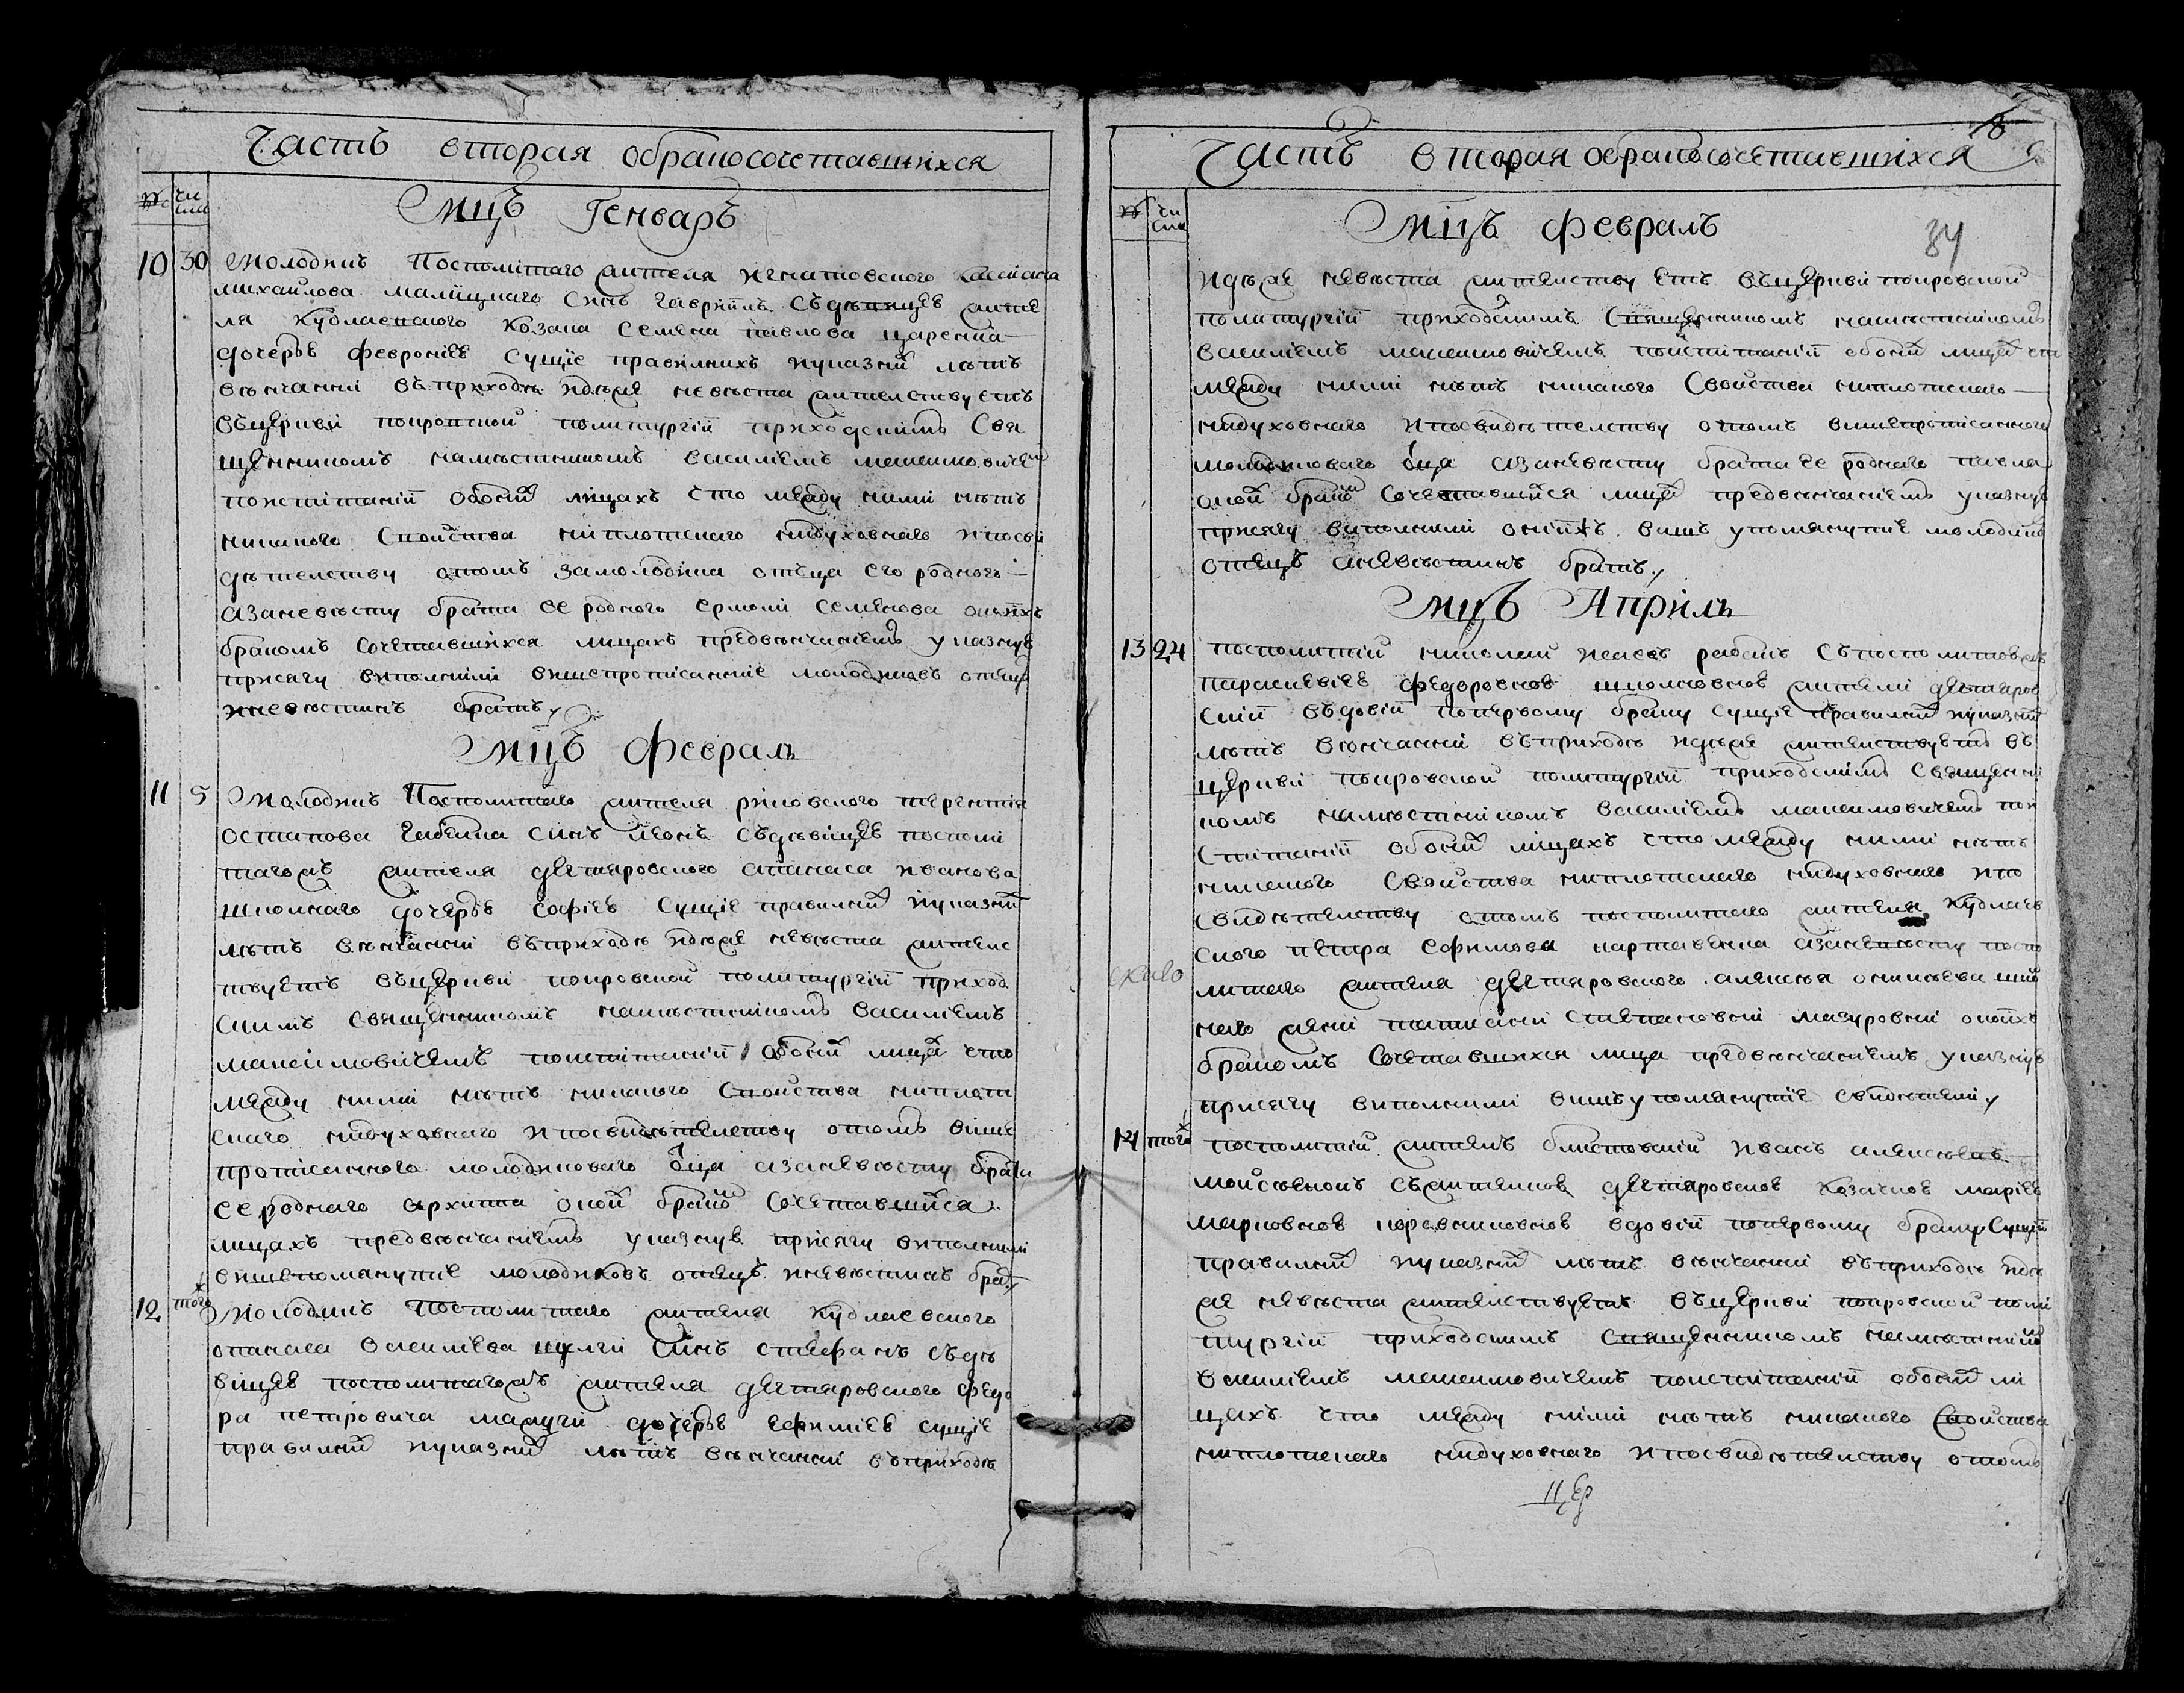 Часть вторая обракосочетавшихся
№ Числа
Мцъ Генварь
10 30 Молодикъ Посполитаго жителя игнатовского Касиана
михайлова малицкаго Синъ гавриилъ Съдѣвицею жите
ля Кублаевского Козака Семена павлова царенка
дочерью феврониею Сущіе правилнихъ иуказнй лѣтъ
вѣнчанни въприходѣ идѣже невѣста жителствуетъ
въцеркви покровской политургіи приходскимъ Свя
щенникомъ намѣстникомъ василіемъ максимовичем
поиспитаніи обоихъ лицахъ что между ними нѣтъ
никакого Своиства ниплотскаго нидуховнаго ипосви
дѣтелству отомъ замолодика отеца его родного
азаневѣсту брата ее родного Ермоли семенова онихъ
бракомъ Сочетавшихся лицахъ предвѣнчаніемъ указную
присягу виполнили вишепрописанние молодиковъ отецъ
иневѣстинъ братъ
Мцъ Февраль
11 5 Молодикъ Посполитаго жителя рковского терентія
остапова синъ леонъ Съдѣвицею посполи
тагожъ жителя дегтяровского апанаса иванова
школнаго дочерью софіею Сущіе правилнй иуказнй
лѣтъ вѣнчанни въприходѣ идѣже невѣста жителс
твуетъ въцеркви покровской политургіи приход
скимъ священникомъ намѣстникомъ василіемъ
максимовичемъ поиспитаніи обоихъ лицах что
между ними нѣтъ никакого Своиства ниплотс
скаго нидуховнаго ипосвидѣтелству отомъ више
прописанного молодикового оца азаневѣсту брата
ее родного архипа оной бракомъ Сочетавшися
лицахъ предвѣнчаніемъ указную присягу виполнили
вишепомянутие молодиковъ отецъ иневѣстинъ братъ
12 того Молодикъ Посполитаго жителя Кублаевского
опанаса василіева шулги синъ стефанъ съдѣ
вицею посполитагожъ жителя дегтяровского федо
ра петровича мамуги дочерью ефиміею сущіе
правилнй иуказнй лѣтъ вѣнчанни въприходѣ
Часть вторая обракосочетавшихся
№ Числа
Мцъ Февраль 34
идѣже невѣста жителствуетъ въцеркви покровской
политургіи приходскимъ Священникомъ намѣстникомъ
василіемъ максимовичемъ поиспитаніи обоихъ лицах что
между ними нѣтъ никакого Свойства ниплотскаго
нидуховнаго ипосвидѣтелству отомъ вишепрописанного
молодикового оца азаневѣсту брата ее родного павла
оной браком Сочетавшийся лицах предвѣнчаніемъ указную
присягу виполнили онихъ вишъ упомянутие молодиков
отецъ иневѣстинъ братъ
Мцъ Априль
13 24 посполитій николай исаевъ рабецъ съпосполитовою
параскевіею федоровною школновною жители дегтяров
скіи въдовіи попервому браку сущіе правилнй иуказнй
лѣтъ вѣнчанни въприходѣ идѣже жителствуетъ въ
церкви покровской политургіи приходскимъ Священни
комъ намѣстникомъ василіемъ максимовичемъ пои
спитаніи обоихъ лицахъ что между ними нѣтъ
никакого Свойства ниплотскаго нидуховнаго ипо
свидѣтелству отомъ посполитаго жителя Кублаев
ского петра ефимова азаневѣсту поспо
литаго жителя дегтяровского алексѣя онисѣева шко
лнаго жени степановни мазуровни онихъ
бракомъ Сочетавшихся лица предвѣнчаніемъ указную
присягу виполнили вишъупомянутіе свидѣтели
14 того посполитій житель блистовскій иванъ алексѣевъ
моисѣенокъ съжителкою дегтяровскою козачкою маріею
марковною вдовіи попервому браку Сущіи
правилнй иуказнй лѣтъ вѣнчанни въприходѣ идѣ
же невѣста жителствуетъ въцеркви покровской поли
тургіи приходскимъ Священникомъ намѣстником
василіемъ максимовичемъ поиспитаніи обоихъ ли
цахъ что между ними нѣтъ никакого Свойства
ниплотскаго нидуховнаго ипосвидѣтелству отомъ
Цер